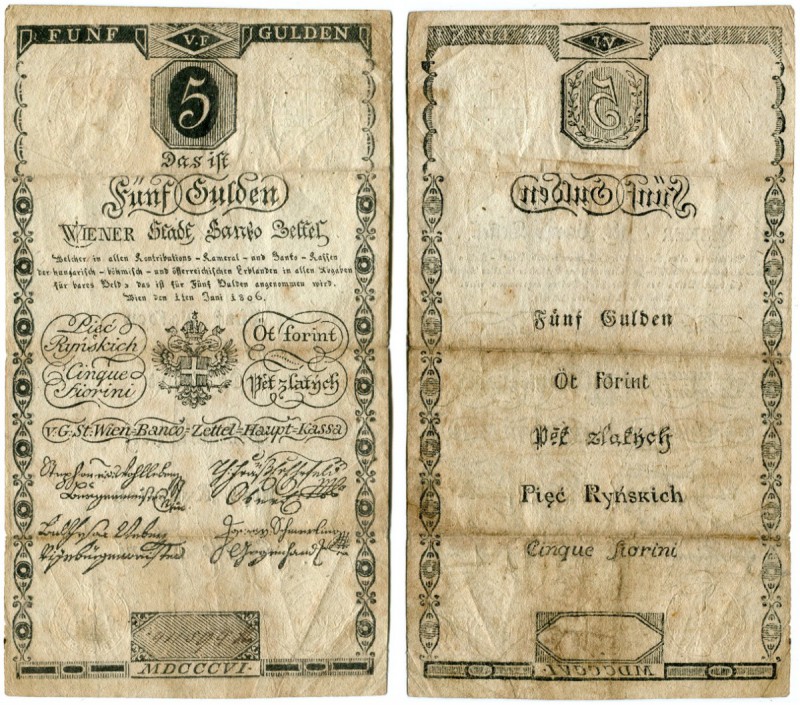 FUNF V.F GULDEN
5
Das ist
Fünf Gulden
WIENER Stadt Banko Zettel
Welcher in allen Kontributions-Kameral-und Banko-Kassen
der hungarisch-böhmisch-und österreichischen Erblanden in allen Abgaben
für bares Geld, das ist für Fünf Gulden angenommen wird.
Wien den 1ten Juni 1806.
Pięć
Ryńskich
Öt forint
Cinque
fiorini
Pĕt zlatých
v.G.St.Wien-Banco-Zettel-Haupt-Kassa
Bürgermeister
Vizebürgermeister
MDCCCVI.
FUNF V.F GULDEN
5
Fünf Gulden
Fünf Gulden
Öt forint
Pĕt zlatých
Pięć Ryńskich
Cinque fiorini
MDCCCVI.